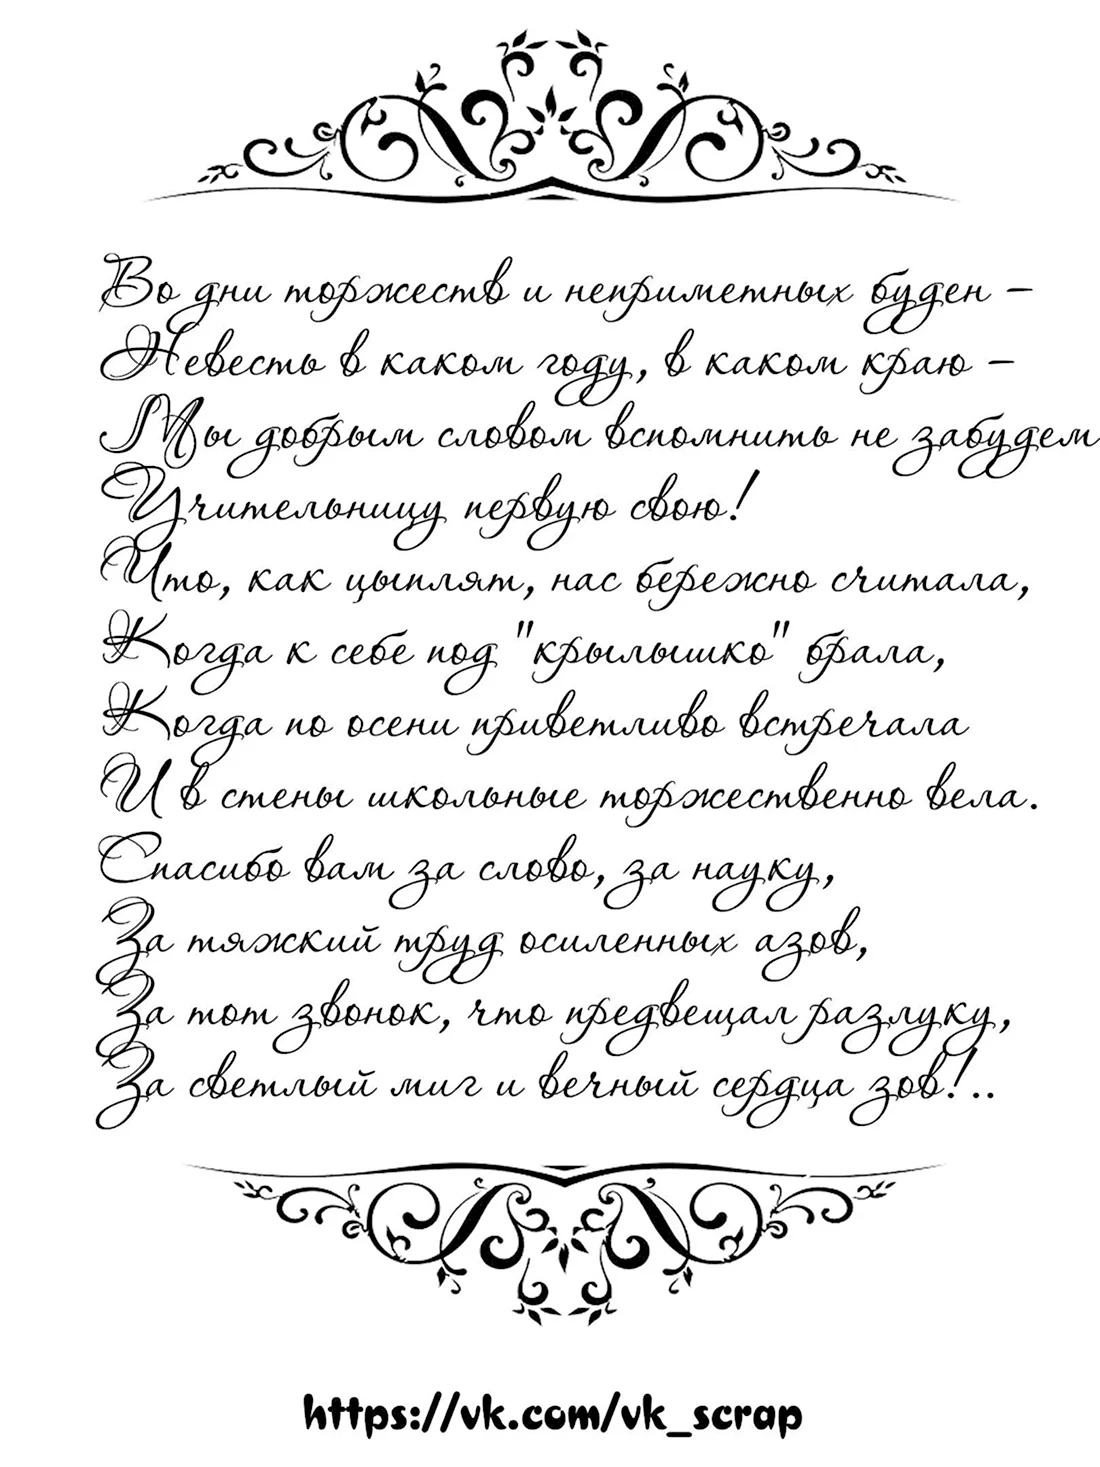 Во дни торжеств и неприметных буден –
Невесть в каком году, в каком краю –
Мы добрым словом вспомнить не забудем
Учительницу первую свою!
Что, как цыплят, нас бережно считала,
Когда к себе под "крылышко" брала,
Когда по осени приветливо встречала
И в стены школьные торжественно вела.
Спасибо вам за слово, за науку,
За тяжкий труд осиленных азов,
За тот звонок, что предвещал разлуку,
За светлый миг и вечный сердца зов!..
https://vk.com/vk_scrap